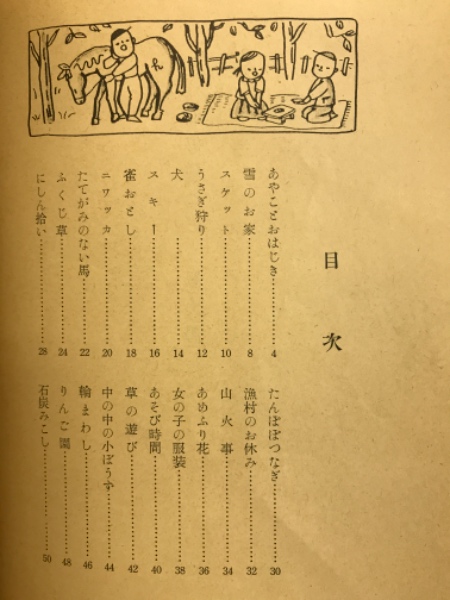 目次
あやことおはじき……………4
雪のお家……………8
スケット……………10
うさぎ狩り……………12
犬……………14
スキー……………16
雀おとし……………18
ニワッカ……………20
たてがみのない馬……………22
ふくじ草……………24
にしん拾い……………28
たんぽぽつなぎ……………30
漁村のお休み……………32
山火事……………34
あめふり花……………36
女の子の服装……………38
あそび時間……………40
草の遊び……………42
中の中の小ぼうず……………44
輪まわし……………46
りんご園……………48
石炭みこし……………50